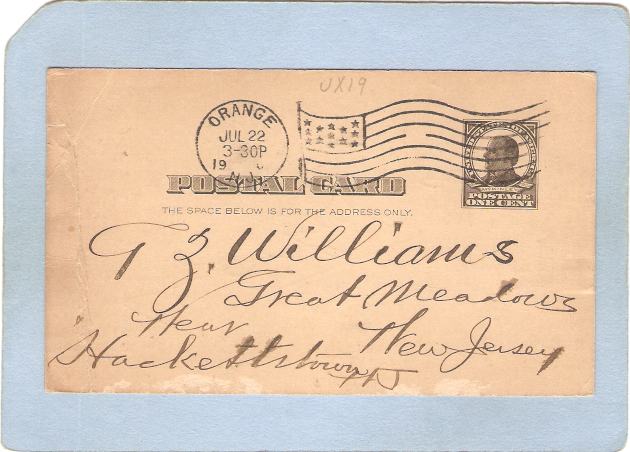 UX19
ORANGE
JUL 22
3-30P
19
N.J.
POSTAL CARD
THE SPACE BELOW IS FOR THE ADDRESS ONLY.
POSTAGE
ONE CENT
T Z. Williams
Great Meadows
Near New Jersey
Hackettstown NJ